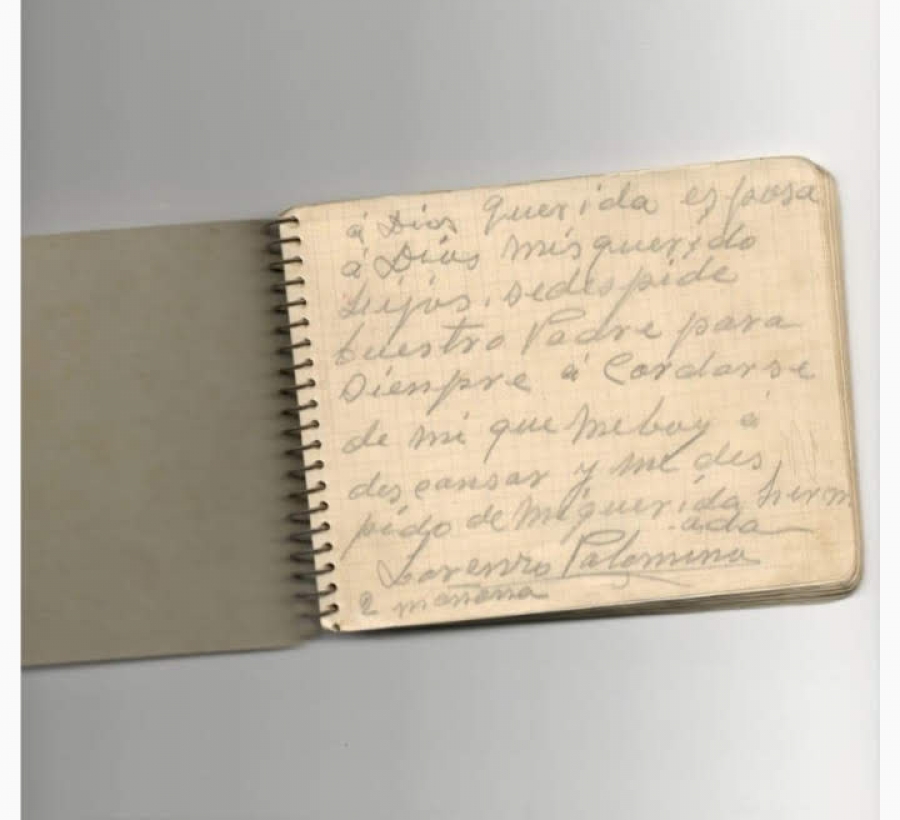 á Dios querida esposa
á Dios mis querido
hijos. sedespide
buestro Padre para
Siempre á Cordarse
de mi que meboy á
descansar y me des,
pido de miquerida herm
ada
Lorenzo Palomino
2 mañana